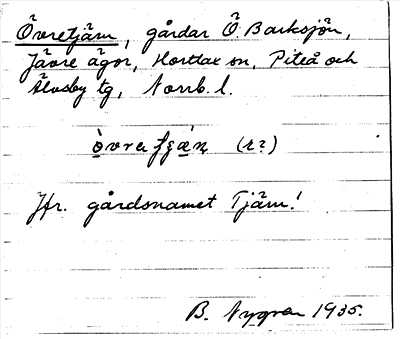 Övretjärn, gårdar Ö Barksjön,
Jävre ägor, Hortlax sn, Piteå och
Älvsby tg, Norrb. l.
(r?)
Jfr. gårdsnamnet Tjärn!
B. Nygren 1935.